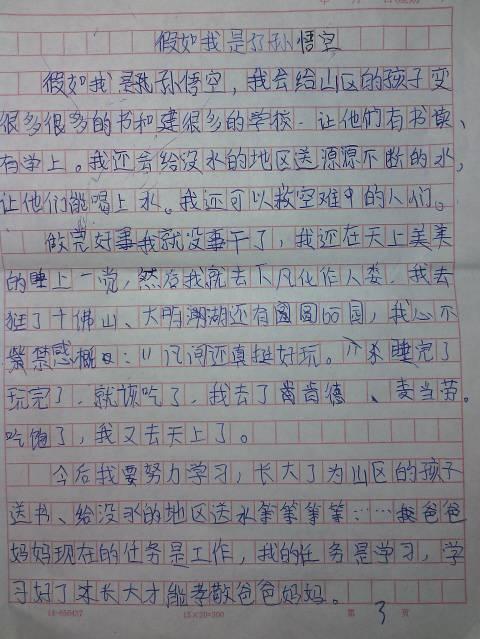 假如我是了孙悟空
假如我是我孙悟空，我会给山区的孩子变
很多很多的书和建很多的学校，让他们有书读、
有学上。我还会给没水的地区送源源不断的水，
让他们能喝上水。我还可以救空难中的人们。
做完好事我就没事干了，我还在天上美美
的睡上一觉，然后我就去下凡化作人类，我去
逛了十佛山、大明湖湖还有圆圆的园，我心不
禁感概：“凡间还真挺好玩。”睡完了
玩完了，就该吃了，我去了肯肯德、麦当劳。
吃饱了，我又去天上了。
今后我要努力学习，长大了为山区的孩子
送书、给没水的地区送水等等等等……爸爸
妈妈现在的任务是工作，我的任务是学习，学
习好了来长大才能孝敬爸爸妈妈。
15×20=300
第 3 页